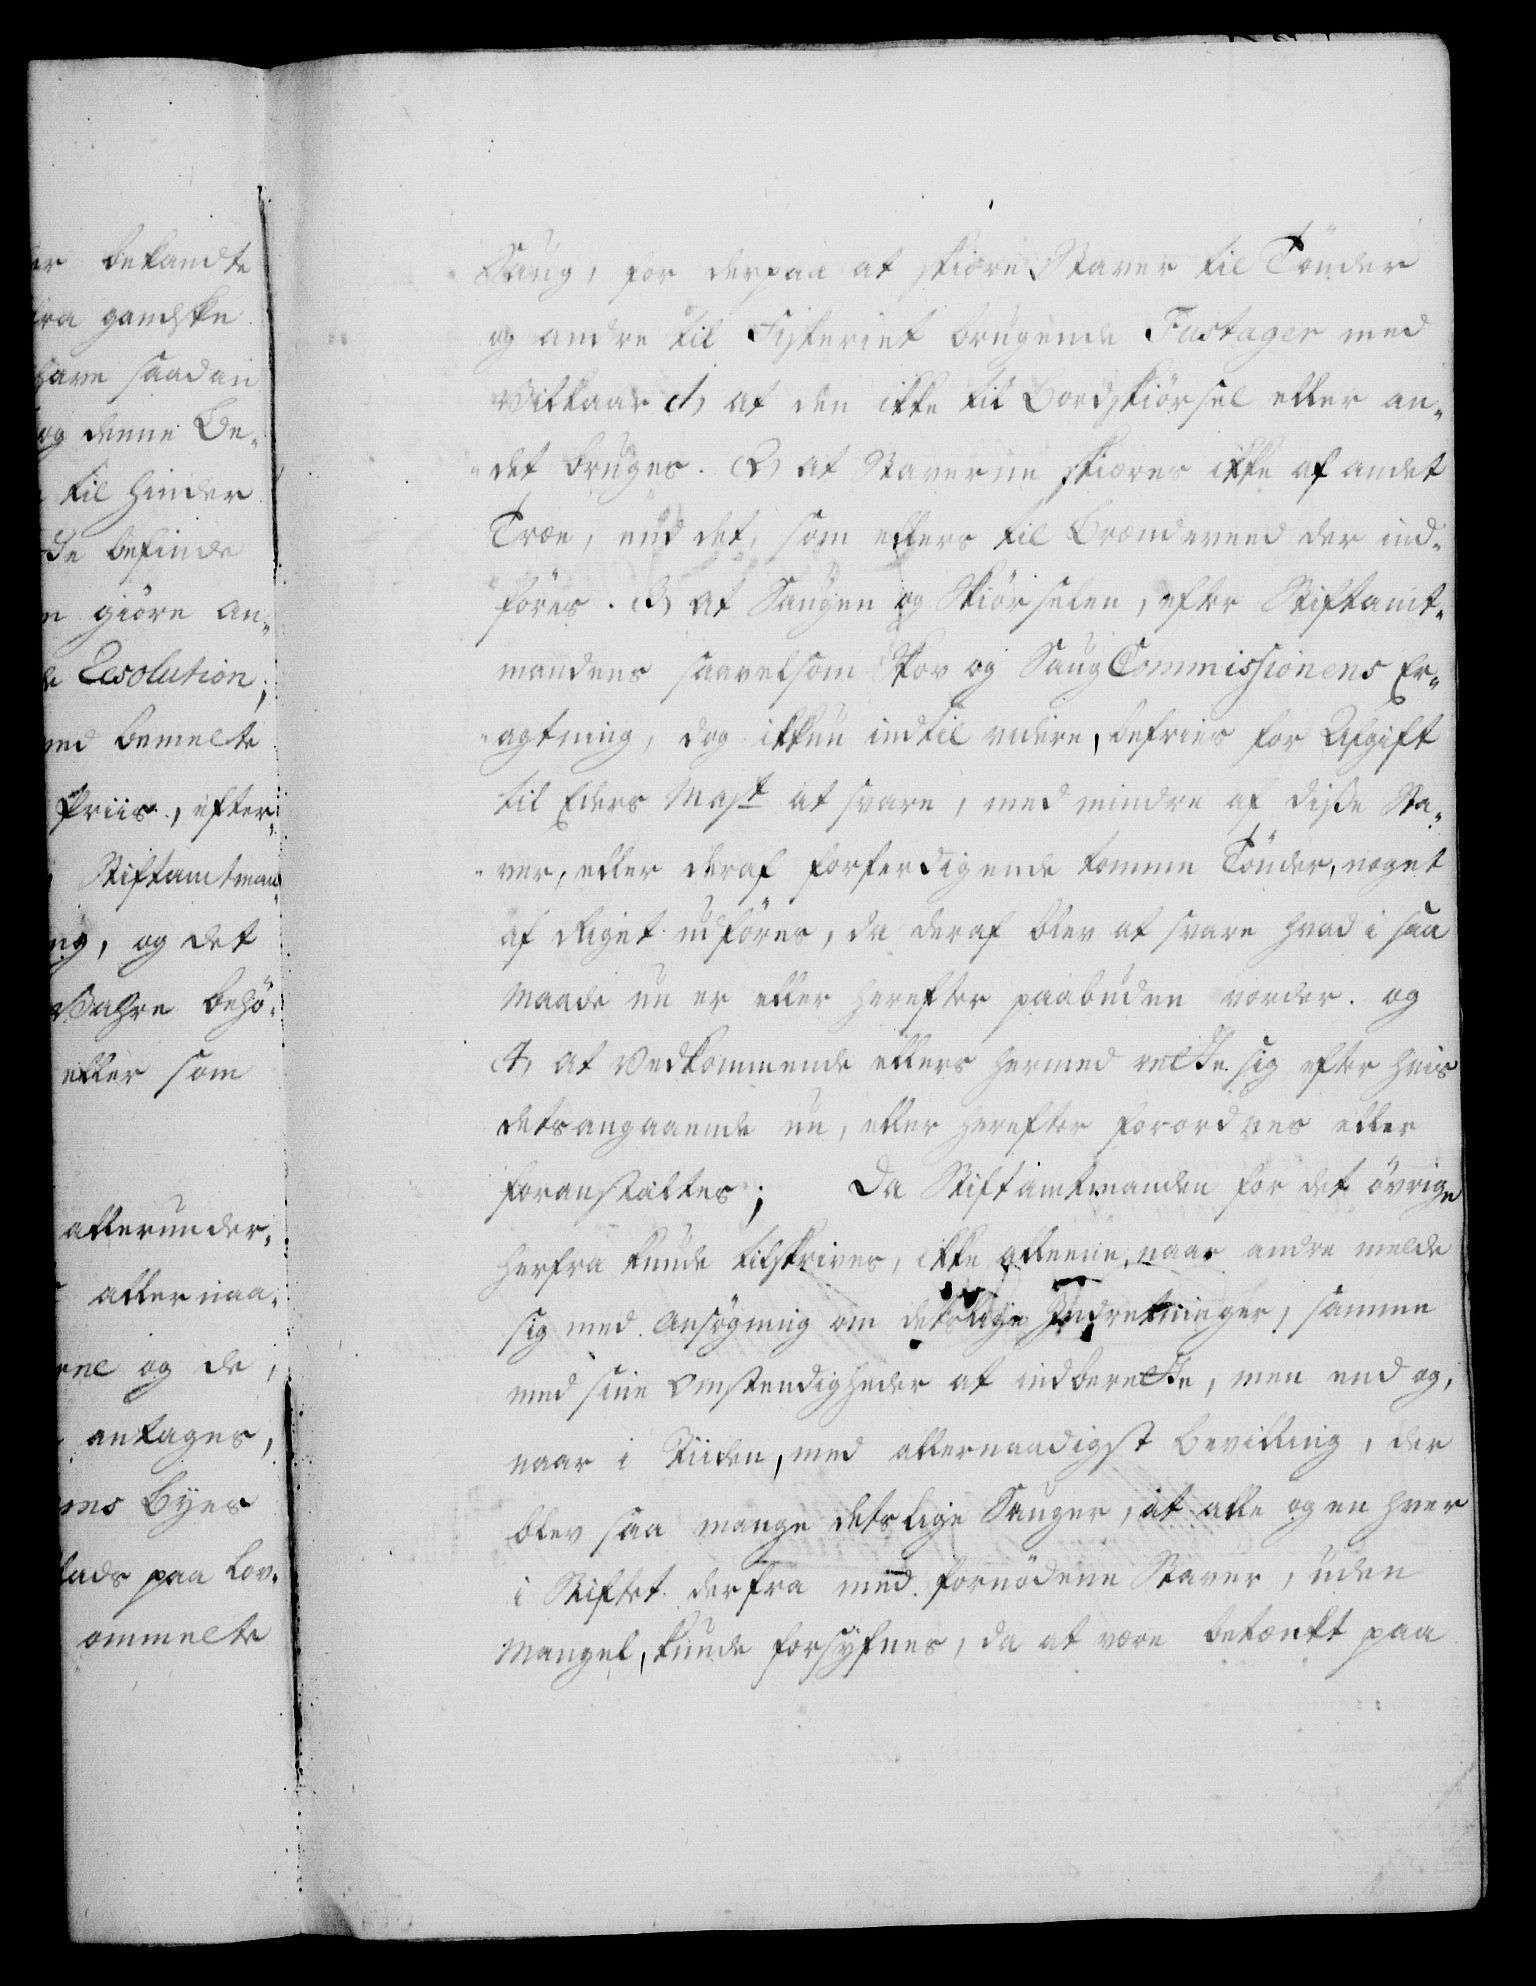 er bekandte
fra gandske
have saadan
og denne Be-
til hinder
befinde
giöre an-
Resolution;
ved bemelte
Priis, efter-
Stiftamtman-
ng, og det
behö-
eller som
allerunder-
allernaa-
og de,
antages,
Byes
lads paa Lov-
ommelte
Saug, for derpaa at skiære Staver til Tönder
og andre til Fiskeriet brugende Fustager med
Vilkaar 1, at den ikke til Bordskiörsel eller an-
det bruges. 2, at Staverne skiæres ikke af andet
Træe, end det, som ellers til Brændeveed der ind-
föres. 3, at Saugen og Skiörselen, efter Stiftamt-
mandens saavelsom Skov og Saug Commissionens Er-
agtning, dog ikkun indtil videre, befries for Afgift
til Eders Mayt at svare, med mindre af disse Sta-
ver, eller deraf forferdigende tomme Tönder, noget
af Riget udföres, da deraf blev at svare hvad i saa
Maade nu er eller herefter paabuden vorder. og
4, at Vedkommende ellers hermed rette sig efter hvis
detsangaaende nu, eller herefter forordnes eller
foranstaltes; Da Stiftamtmanden for det övrige
herfra kunde tilskrives, ikke alleene, naar andre melde
sig med Ansögning om detslige Indretninger, samme
med sine Omstendigheder at indberette, men end og,
naar i Tiiden, med allernaadigst Bevilling, der
blev saa mange detslige Sauger, at alle og en hver
i Stiftet derfra med fornödene Staver, uden
Mangel, kunde forsyfnes, da at være betænkt paa